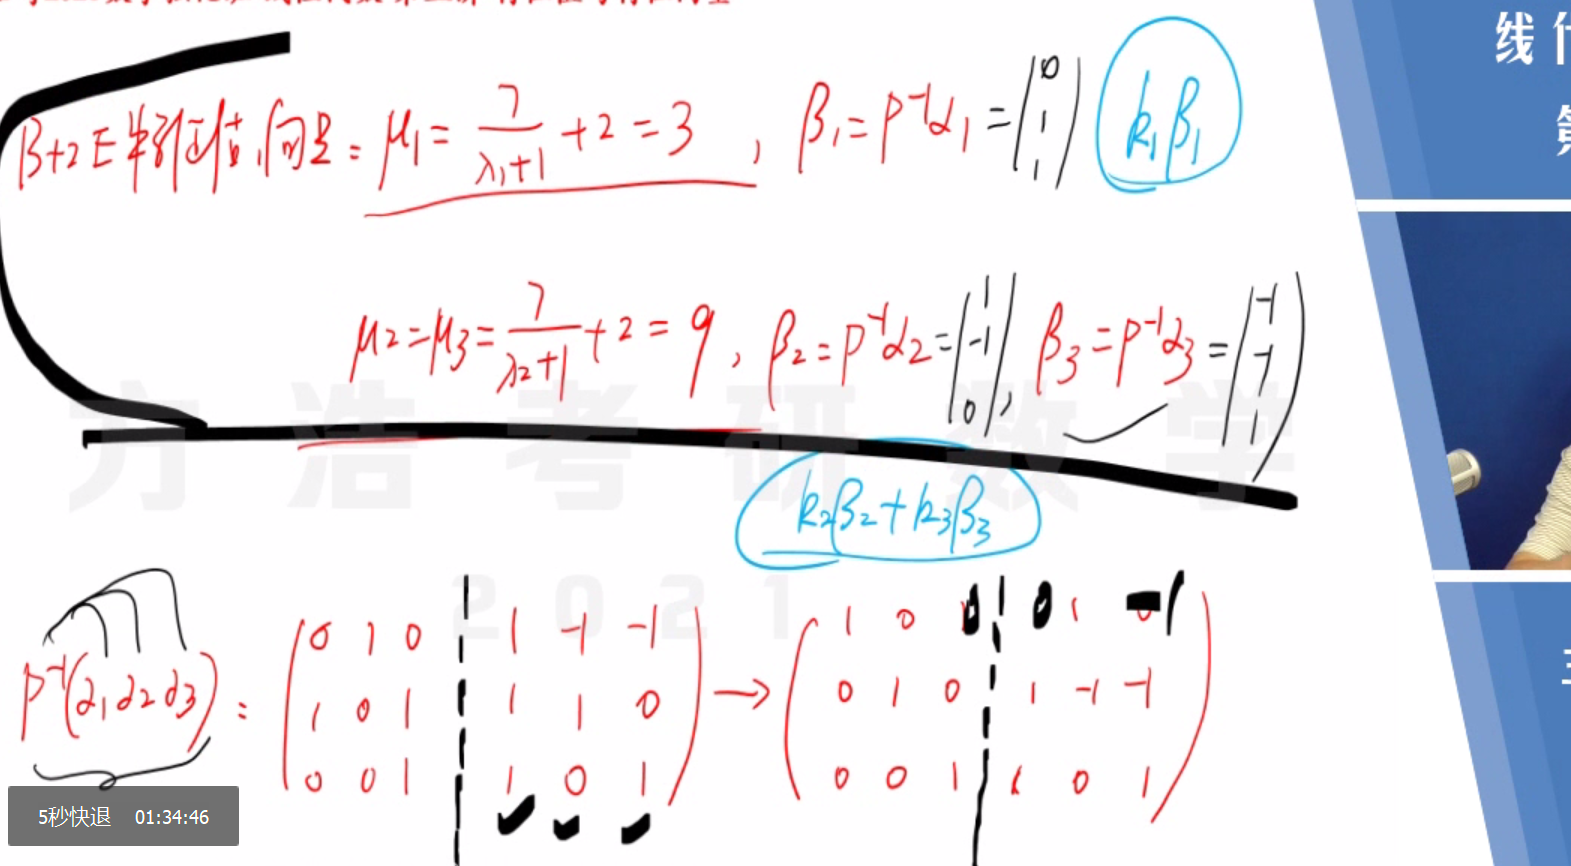 线
第
B+2E 特征值、向量: μ₁ = 7/(λ₁+1) + 2 = 3 , β₁ = P⁻¹α₁ = (0 1 1) k₁β₁
μ₂=μ₃= 7/(λ₂+1) + 2 = 9 , β₂ = P⁻¹α₂ = (1 -1 0) , β₃ = P⁻¹α₃ = (-1 -1 1)
方浩考研数学
k₂β₂+k₃β₃
2021
P⁻¹(α₁ α₂ α₃) : (0 1 0 ¦ 1 -1 -1 → (1 0 0 ¦ 0 1 -1
1 0 1 ¦ 1 1 0 0 1 0 ¦ 1 -1 -1
0 0 1 ¦ 1 0 1) 0 0 1 ¦ 1 0 1)
5秒快退 01:34:46